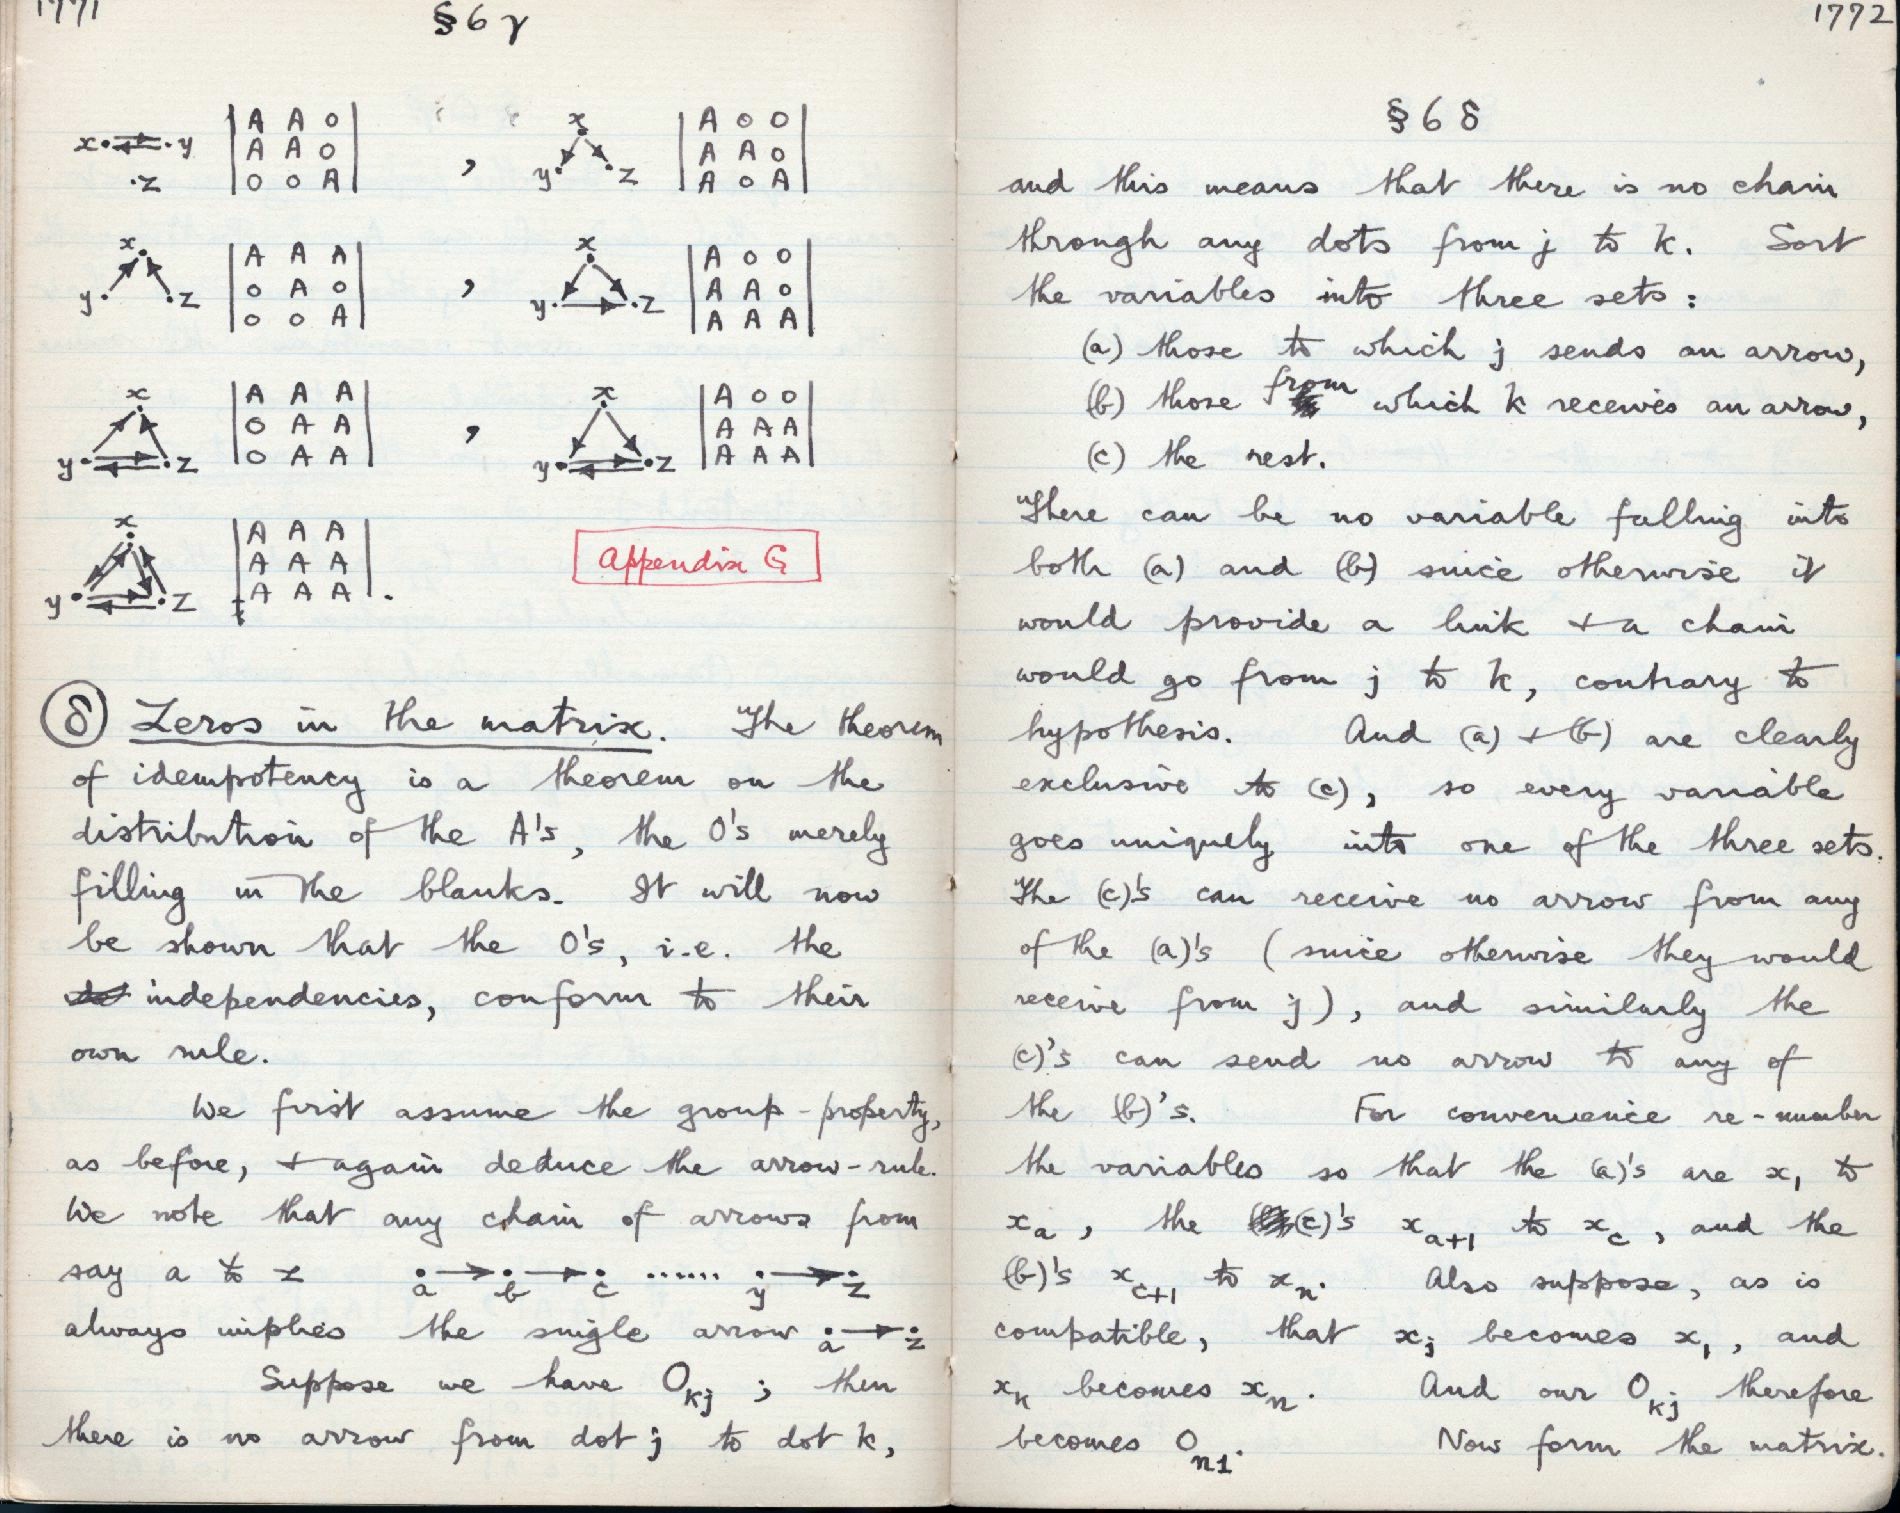 1771
§ 6 γ
x y z
A A O
A A O
O O A
,
x y z
A O O
A A O
A O A
x y z
A A A
O A O
O O A
,
x y z
A O O
A A O
A A A
x y z
A A A
O A A
O A A
,
x y z
A O O
A A A
A A A
x y z
A A A
A A A
A A A
.
Appendix G
δ Zeros in the matrix. The theorem
of idempotency is a theorem on the
distribution of the A's, the O's merely
filling in the blanks. It will now
be shown that the O's, i.e. the
independencies, conform to their
own rule.
We first assume the group-property,
as before, + again deduce the arrow-rule.
We note that any chain of arrows from
say a to z a → b → c ...... y → z
always implies the single arrow a → z
Suppose we have O_kj ; then
there is no arrow from dot j to dot k,
1772
§ 6 δ
and this means that there is no chain
through any dots from j to k. Sort
the variables into three sets:
(a) those to which j sends an arrow,
(b) those from which k receives an arrow,
(c) the rest.
There can be no variable falling into
both (a) and (b) since otherwise it
would provide a link + a chain
would go from j to k, contrary to
hypothesis. And (a) + (b) are clearly
exclusive to (c), so every variable
goes uniquely into one of the three sets.
The (c)'s can receive no arrow from any
of the (a)'s (since otherwise they would
receive from j), and similarly the
(c)'s can send no arrow to any of
the (b)'s. For convenience re-number
the variables so that the (a)'s are x_1 to
x_a, the (c)'s x_a+1 to x_c, and the
(b)'s x_c+1 to x_n. Also suppose, as is
compatible, that x_j becomes x_1, and
x_k becomes x_n. And our O_kj therefore
becomes O_n1. Now form the matrix.